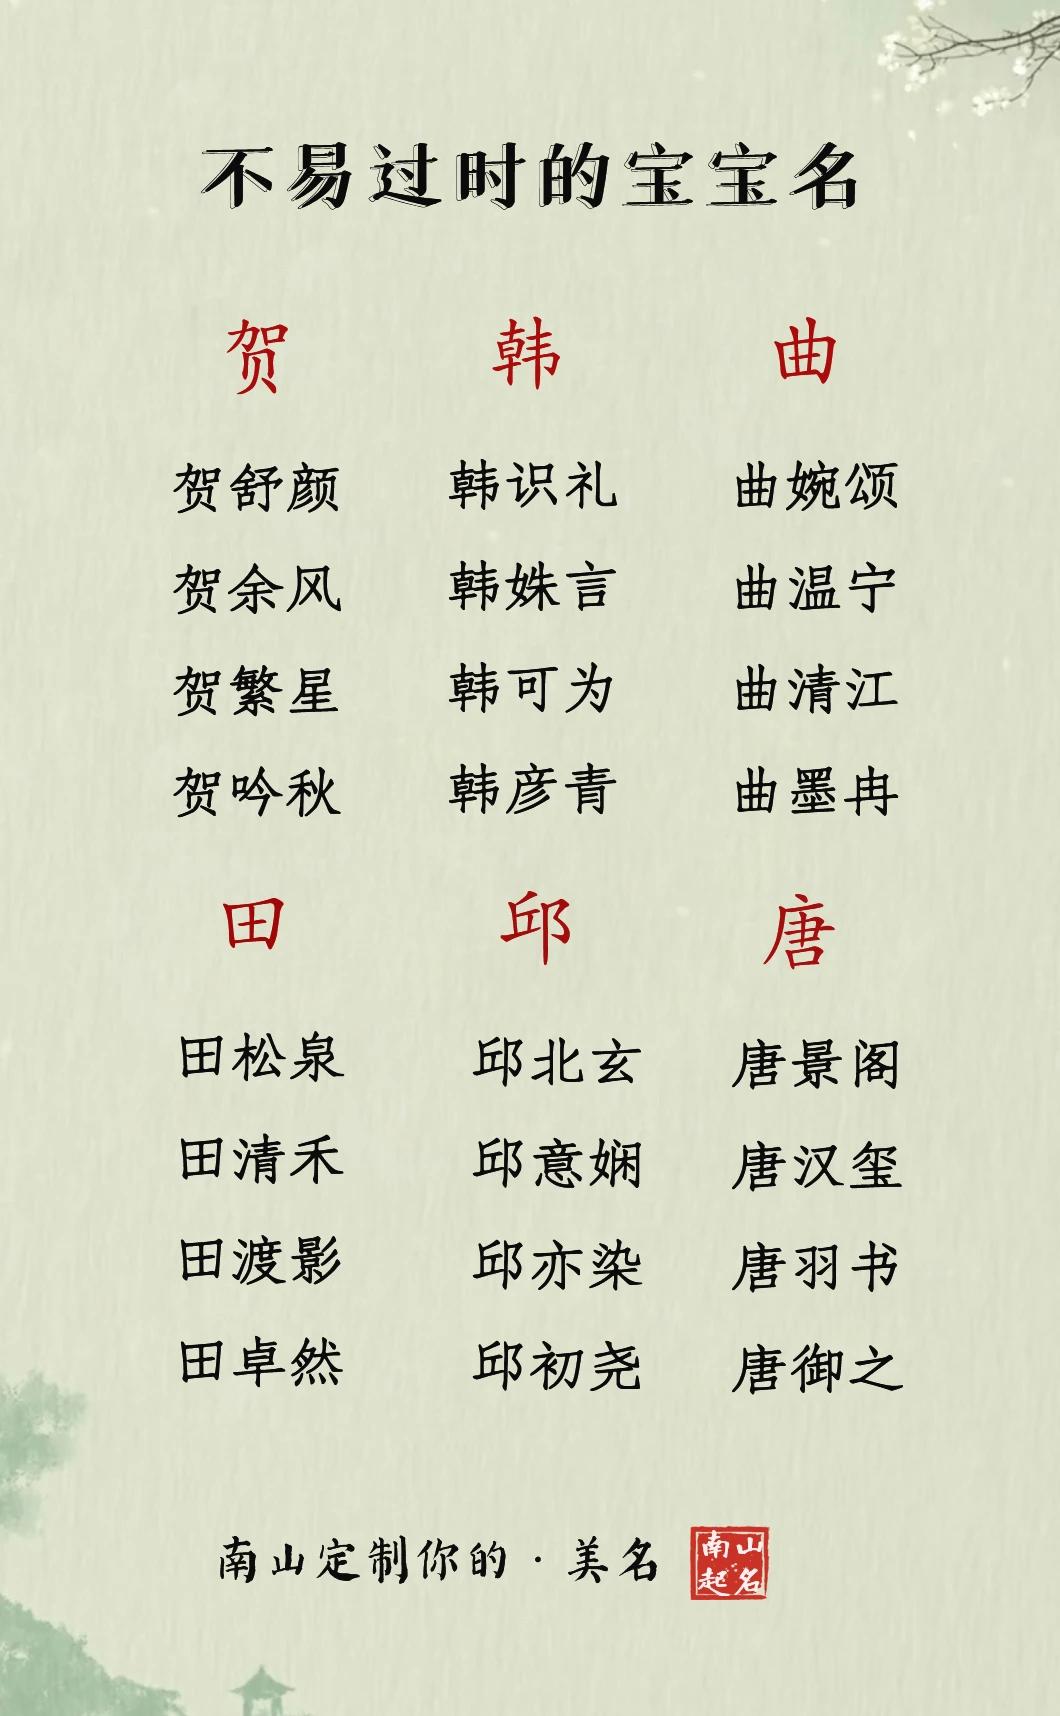 不易过时的宝宝名
贺 韩 曲
贺舒颜 韩识礼 曲婉颂
贺余风 韩姝言 曲温宁
贺繁星 韩可为 曲清江
贺吟秋 韩彦青 曲墨冉
田 邱 唐
田松泉 邱北玄 唐景阁
田清禾 邱意娴 唐汉玺
田渡影 邱亦染 唐羽书
田卓然 邱初尧 唐御之
南山定制你的·美名
南山
起名